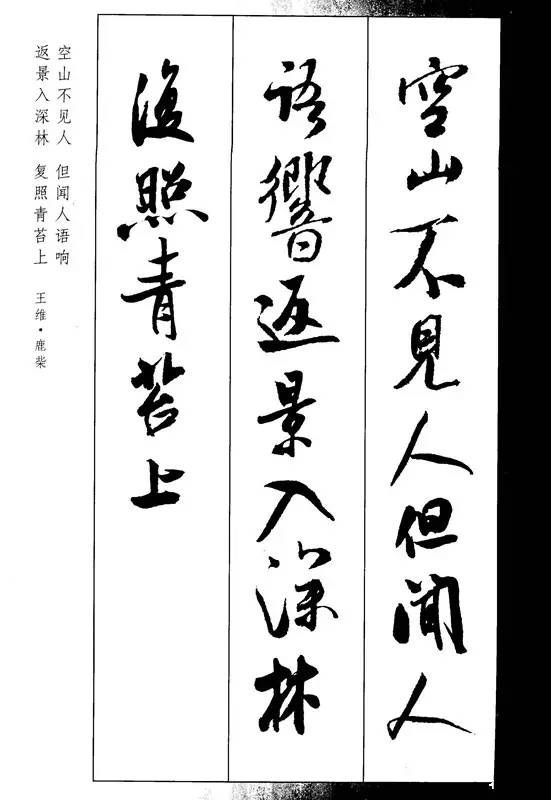 空山不見人但聞人
語響返景入深林
復照青苔上
空山不见人 但闻人语响
返景入深林 复照青苔上 王维·鹿柴